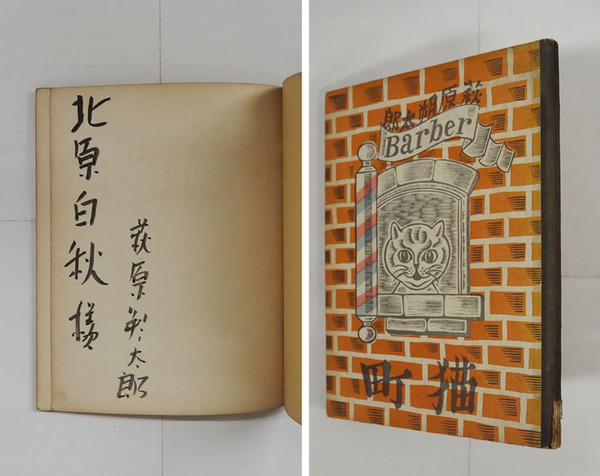 北原白秋様
萩原朔太郎
萩原朔太郎
Barber
猫町